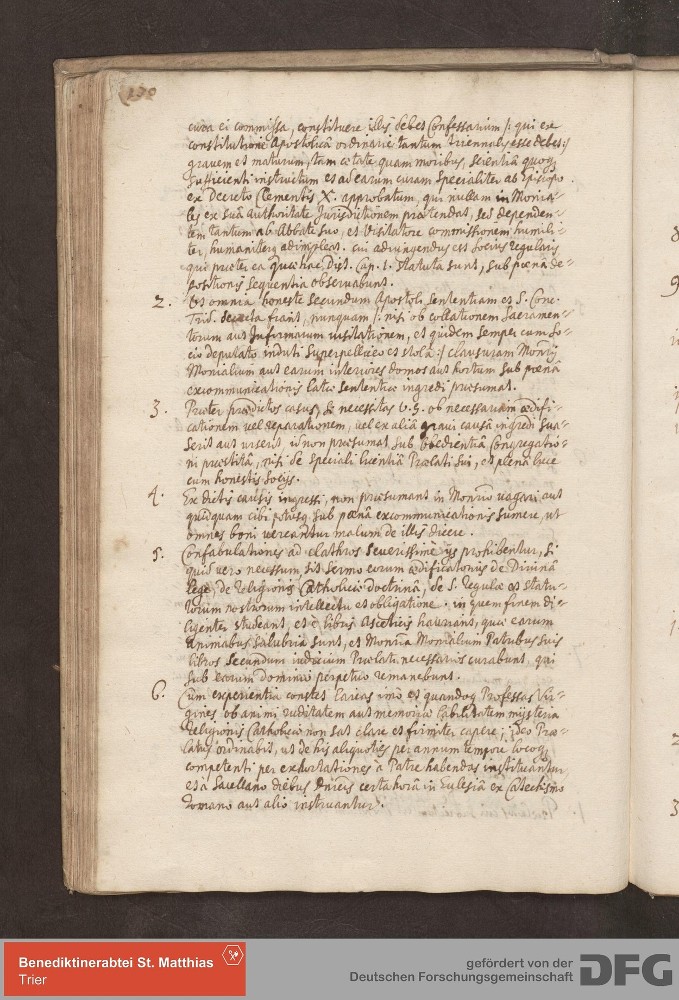 170
cura ei commissa, constituere illis debet Confessarium /: qui ex
constitutione Apostolicâ ordinarie tantum triennalis esse debet :/
gravem et maturum, tam aetate quam moribus, scientiâ quoq
sufficienti instructum et ad earum curam specialiter ab Episcopo
ex Decreto Clementis X. approbatum, qui nullam in Monia-
les ex suâ authoritate Jurisdictionem praetendat, sed dependen-
tem tantum ab Abbate suo, et Visitatore commissionem humili-
ter, humaniterq adimpleat. cui adiungendus est socius regularis
qui praeter ea quae hac Dist. Cap. 1. statuta sunt, sub poenâ de-
positionis sequentia observabunt.
2. Ut omnia honeste secundum Apostoli sententiam et S. Conc.
Trid. decreta fiant, nunquam /: nisi ob collationem Sacramen-
torum aut infirmarum visitationem, et quidem semper cum so-
cio deputato induti superpelliceo et stolâ :/ clausuram Monrij
Monialium aut earum interiores domos aut hortum sub poenâ
excommunicationis latae sententiae ingredi praesumat.
3. Praeter praedictos casus, si necessitas v. g. ob necessariam aedifi-
cationem vel reparationem, vel ex aliâ gravi causâ ingredi sua-
serit aut urserit, id non praesumat sub obedientiâ Congregatio-
ni praestitâ, nisi de speciali licentiâ Praelati sui, et plenâ luce
cum honestis socijs.
4. Ex dictis causis ingressi, non praesumant in Monrio vagari, aut
quidquam cibi potusq sub poenâ excommunicationis sumere, ut
omnes boni vereantur malum de illis dicere.
5. Confabulationes ad clathros severissime ijs prohibentur, si
quid vero necessum, sit sermo eorum aedificatorius de Divinâ
lege, de religionis Catholicae doctrinâ, de S. regulae et statu-
torum nostrorum intellectu et obligatione. in quem finem di-
ligenter studeant, et è libris Asceticis hauriant, quae earum
animabus salubria sunt, et Monria Monialium Patribus suis
libros secundum iudicium Praelati necessarios curabunt, qui
sub earum dominio perpetuo remanebunt.
6. Cum experientia constet laicas imò et quandoq Professas Vir-
gines ob animi ruditatem aut memoriae labilitatem mysteria
religionis Catholicae non sat clare et firmiter capere; ideo Prae-
latus ordinabit, ut de his aliquoties per annum tempore locoq
competenti per exhortationes à Patre habendas instituantur
et à Sacellano diebus Dnicis certa horâ in Ecclesiâ ex Catechismo
Romano aut alio instruantur.
Benediktinerabtei St. Matthias
Trier
gefördert von der
Deutschen Forschungsgemeinschaft
DFG